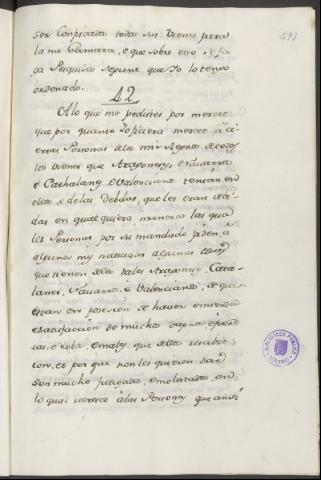 493
ser confiscados todos sus vienes para
la mi Camara, e que sobre esto se fa
ga Pesquisa segunt que Io lo tengo
ordenado.
42
A lo que me pedistes por merced
que por quanto Io ficiera merced a ci
ertas Personas de la mi de todos
los vienes que Aragoneses, e Navarros
e Cathalanes e Valencianos tenian en
ella, e delas Debdas, que les eran devi
das en qualquiera manera las qua
les Personas por su mandado piden, a
algunos mis naturales algunas
que tienen de los tales Aragoneses, Cata
lanes, Navarros, e Valencianos, de que
estan en posesion de haver enmienda
e satisfaccion de muchos
rias, e robos, e males que dellos recibie
ron, et por que non les quieren dar
son mucho fatigados, e molestados, en
lo qual recrece a las Personas que ansi
BIBLIOTECA PUBLICA
TOLEDO